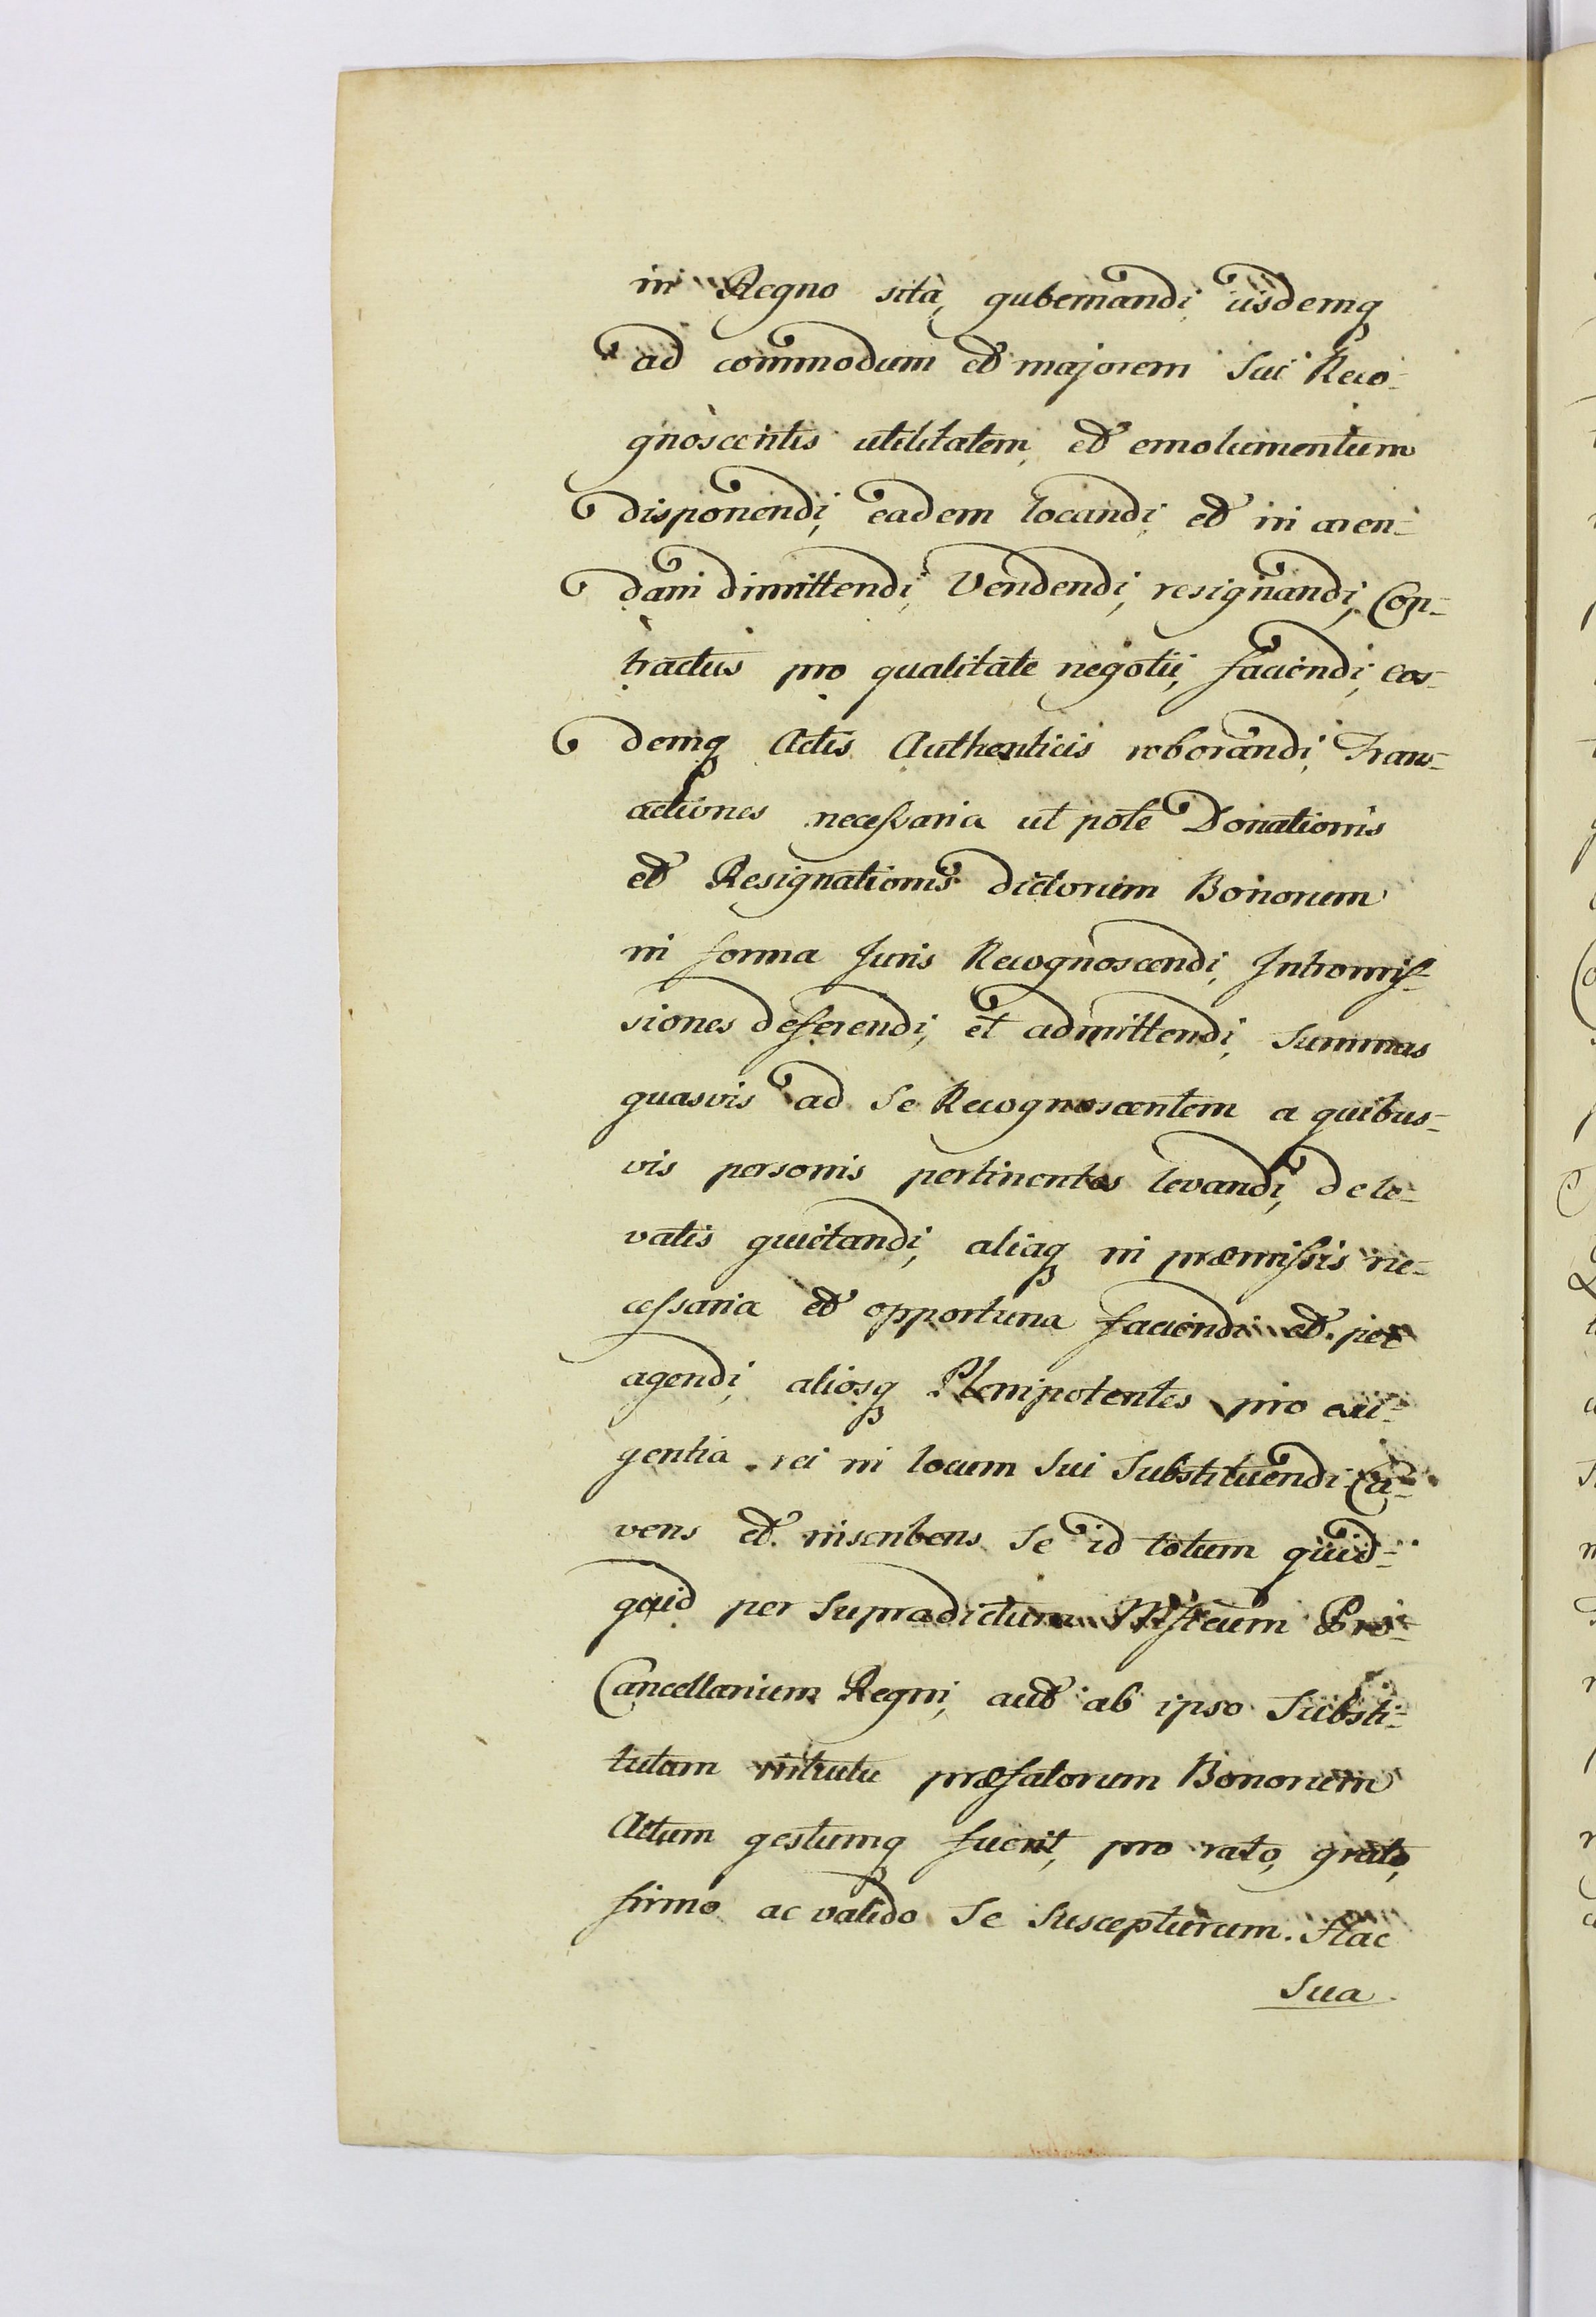 in Regno sita, gubernandi iisdemq
ad commodum et majorem sui Reco-
gnoscentis utilitatem, et emolumentum
disponendi, eadem locandi et in aren-
dam dimittendi, Vendendi, resignandi, Con-
tractus pro qualitate negotii, faciendi, eos-
demq Actis Authenticis roborandi, Trans-
actiones necessaria ut pote Donationis
et Resignationis dictorum Bonorum
in forma Juris Recognoscendi, Intromis-
siones deferendi, et admittendi, summas
quasvis ad se Recognoscentem a quibus-
vis personis pertinentes levandi, de le-
vatis quietandi, aliaq in præmissis ne-
cessaria et opportuna faciendi et per
agendi, aliosq Plenipotentes pro exi-
gentia rei in locum sui substituendi Ca-
vens et inscribens se id totum quid-
quid per supradictum Pro-
Cancellarium Regni, aut ab ipso Substi-
tutam intuitu præfatorum Bonorum
Actum gestumq fuerit, pro rato, grato,
firmo ac valido se suscepturum. Hac
Sua.